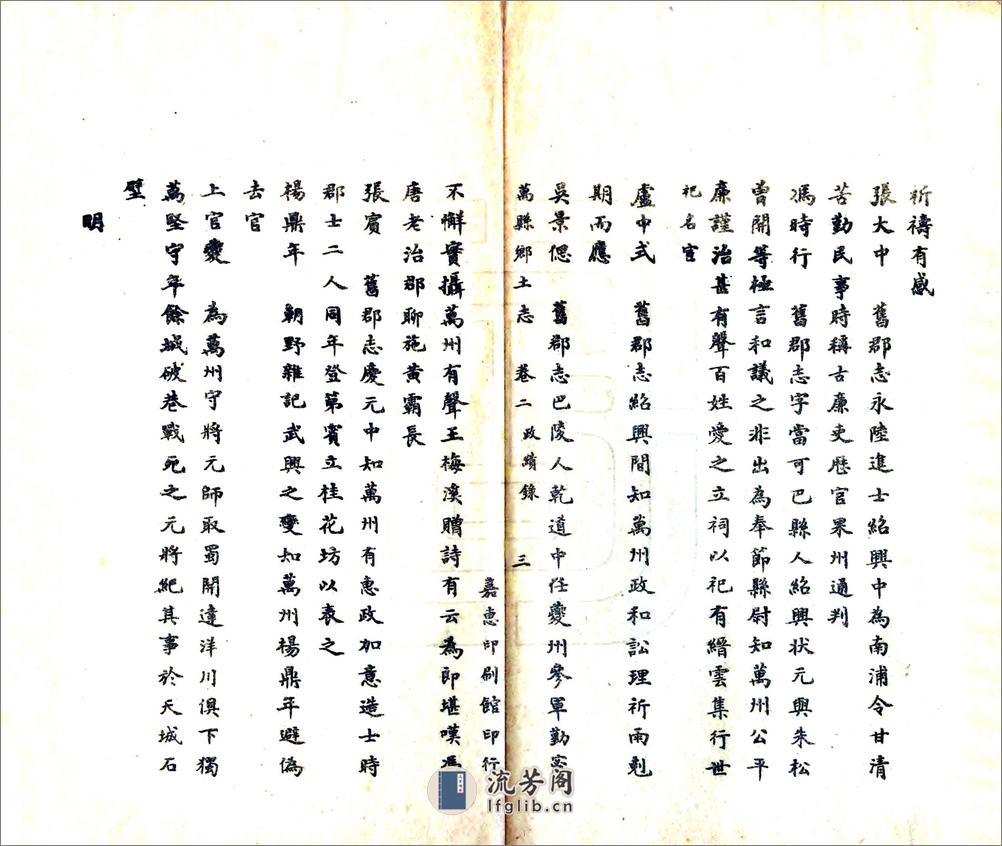 祈禱有感
張大中　舊郡志永陸進士紹興中為南浦令甘清
苦勤民事時稱古廉吏歷官果州通判
馮時行　舊郡志字當可巴縣人紹興狀元興朱松
曾開等極言和議之非出為奉節縣尉知萬州公平
廉謹治甚有聲百姓愛之立祠以祀有縉雲集行世
祀名宦
盧中式　舊郡志紹興間知萬州政和訟理祈雨剋
期而應
吳景偲　舊郡志巴陵人乾道中任夔州參軍勤密
萬縣鄉土志　卷二　政績錄　三　嘉惠印刷館印行
不懈實攝萬州有聲王梅溪贈詩有云為郎堪嘆馮
唐老治郡聊施黃霸長
張賓　舊郡志慶元中知萬州有惠政加意造士時
郡士二人同年登第賓立桂花坊以表之
楊鼎年　朝野雜記武興之變知萬州楊鼎年避偽
去官
上官夔　為萬州守將元師取蜀開達洋川俱下獨
萬堅守年餘城破巷戰死之元將紀其事於天城石
壁
明
流芳阁
lfglib.cn